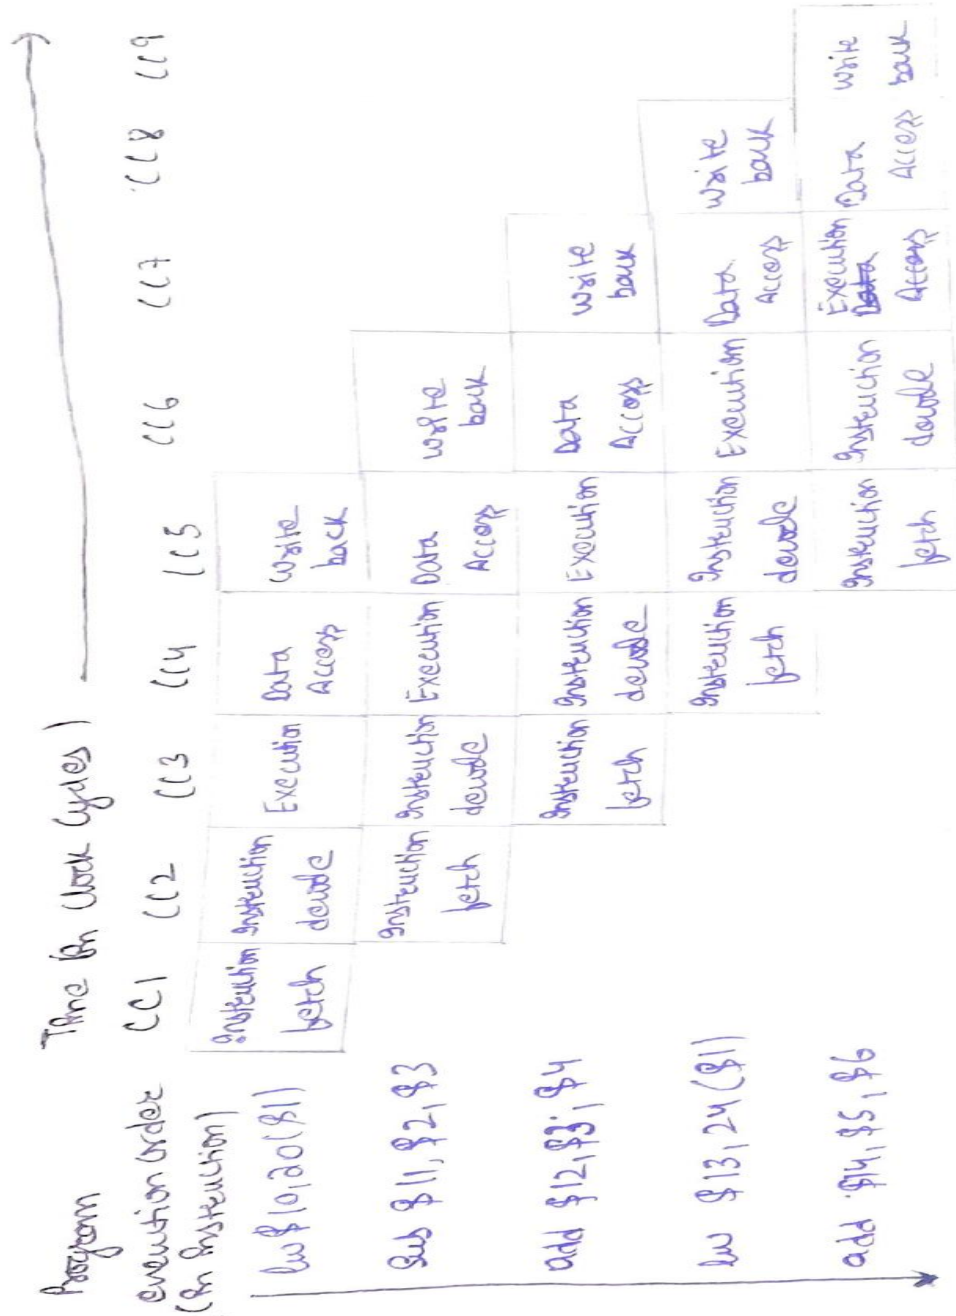 Time (in Clock Cycles)
CC1 CC2 CC3 CC4 CC5 CC6 CC7 CC8 CC9
Program
execution order
(in instruction)
lw $10, 20($1)
Instruction fetch
Instruction decode
Execution
Data Access
Write back
Sub $11, $2, $3
Instruction fetch
Instruction decode
Execution
Data Access
Write back
add $12, $3, $4
Instruction fetch
Instruction decode
Execution
Data Access
Write back
lw $13, 24($1)
Instruction fetch
Instruction decode
Execution
Data Access
Write back
add $14, $5, $6
Instruction fetch
Instruction decode
Execution
Data
Access
Data Access
Write back